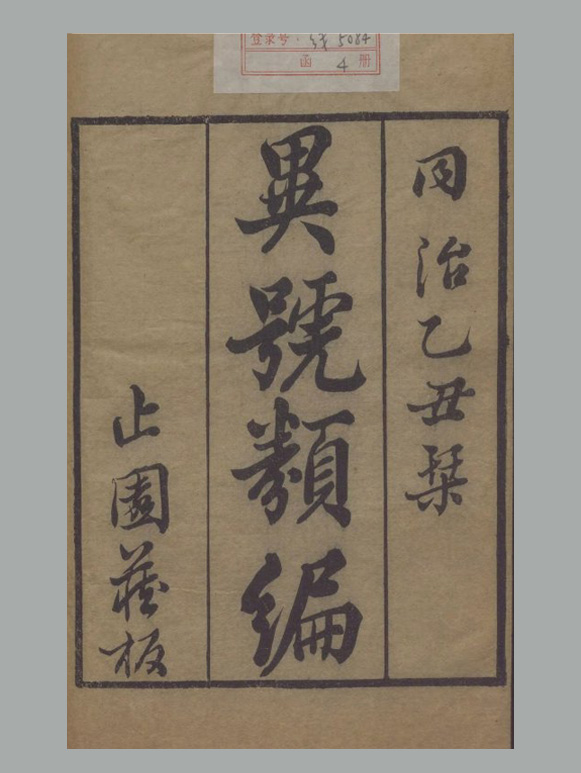 登录号:线5084
函4册
同治乙丑栞
異號類編
止園藏板